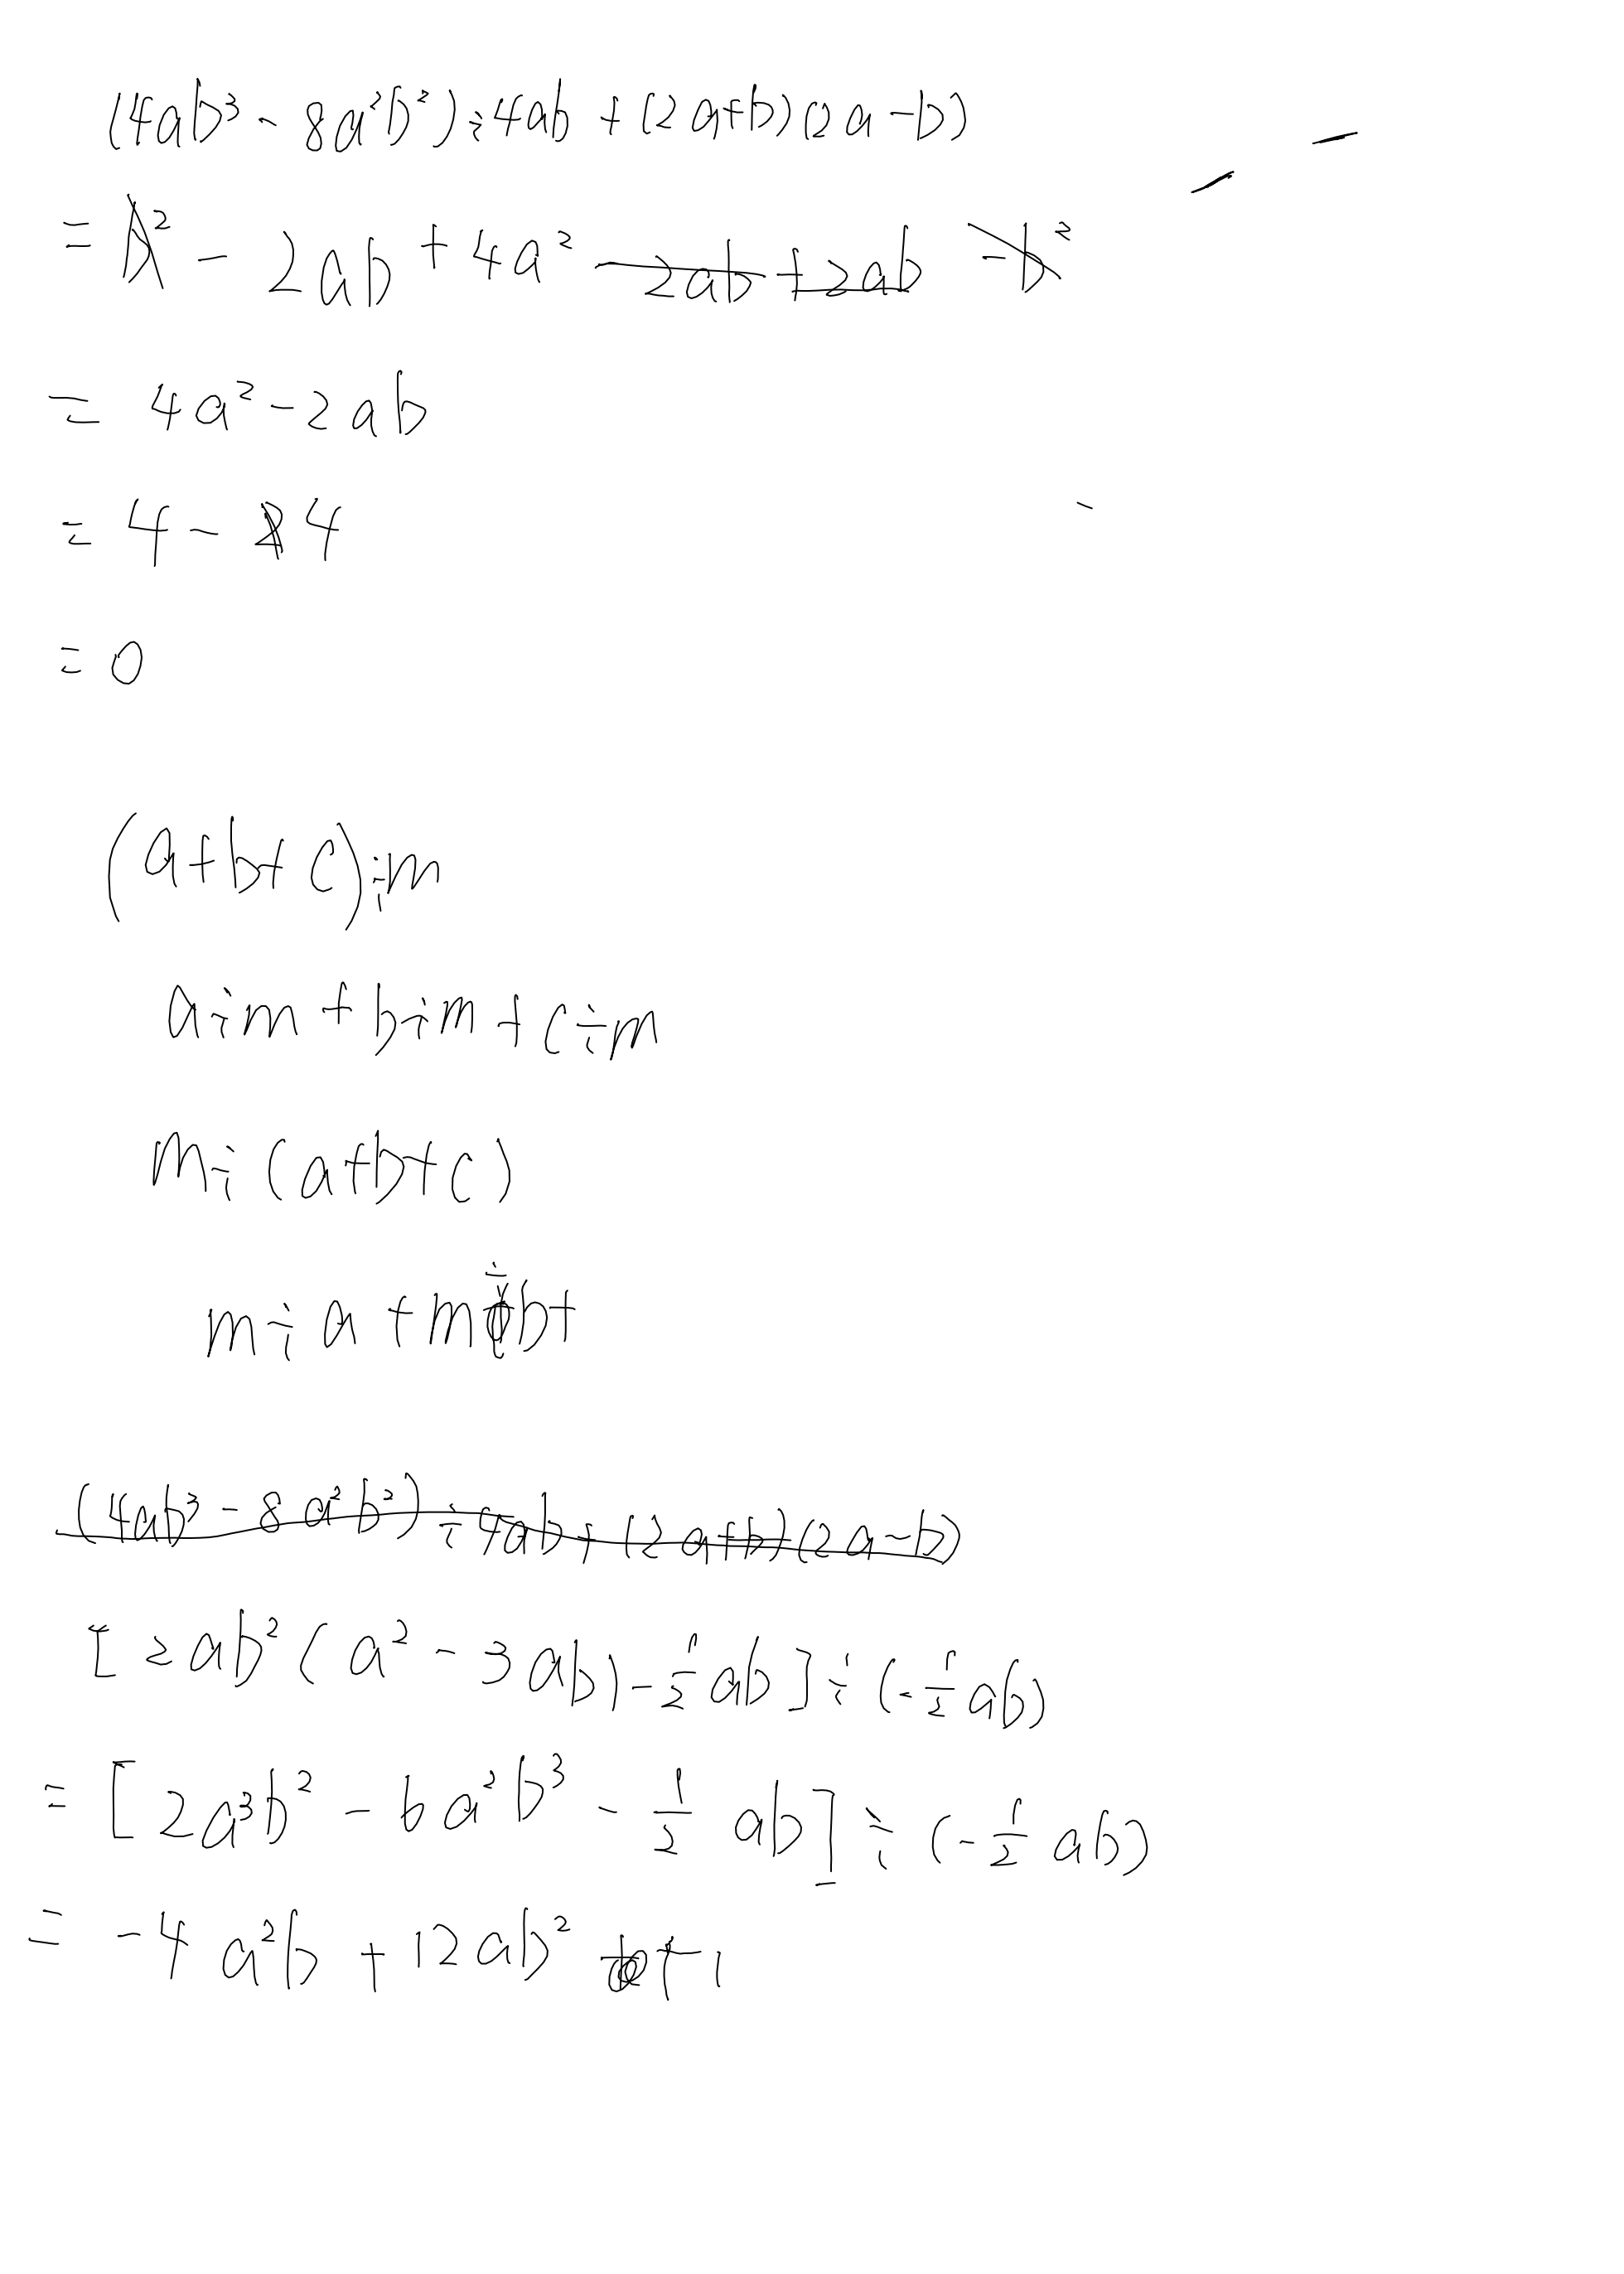 (4ab³ - 8a²b²) ÷ 4ab + (2a+b)(2a-b)
= b² - 2ab + 4a² - 2ab + 2ab - b²
= 4a² - 2ab
= 4 - 4
= 0
(a+b+c)÷m
a÷m + b÷m + c÷m
m÷(a+b+c)
m÷a + m÷b+
(4ab³ - 8a²b²) ÷ 4ab + (2a+b)(2a-b)
[2ab²(a² - 3ab) - ½ab] ÷ (-½ab)
= [2a³b² - 6a²b³ - ½ab] ÷ (-½ab)
= -4a²b + 12ab² + 1